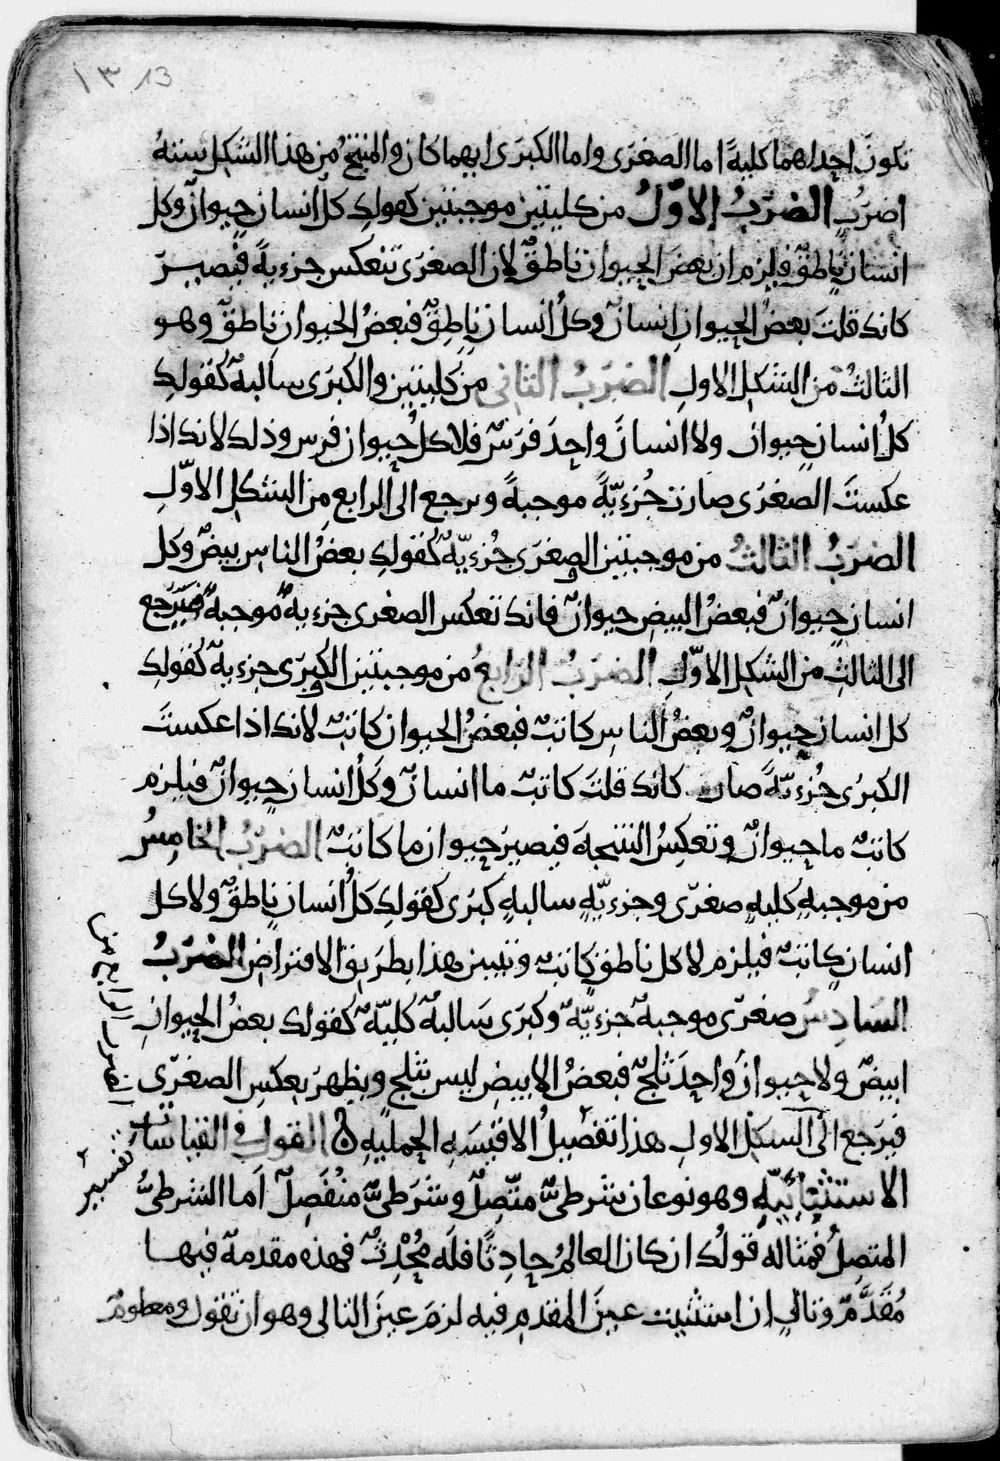 ١٣ 13
تكون احداهما كلية اما الصغرى واما الكبرى ايهما كان والمنتج من هذا الشكل ستة
اضرب الضرب الاول من كليتين موجبتين كقولك كل انسان حيوان وكل
انسان ناطق فيلزم ان بعض الحيوان ناطق لان الصغرى تنعكس جزءية فيصير
كانك قلت بعض الحيوان انسان وكل انسان ناطق فبعض الحيوان ناطق وهو
الثالث من الشكل الاول الضرب الثاني من كليتين والكبرى سالبة كقولك
كل انسان حيوان ولا انسان واحد فرس فلا كل حيوان فرس وذلك لانك اذا
عكست الصغرى صارت جزءية موجبة ويرجع الى الرابع من الشكل الاول
الضرب الثالث من موجبتين والصغرى جزءية كقولك بعض الناس بيض وكل
انسان حيوان فبعض البيض حيوان فانك تعكس الصغرى جزءية موجبة فيرجع
الى الثالث من الشكل الاول الضرب الرابع من موجبتين والكبرى جزءية كقولك
كل انسان حيوان وبعض الناس كاتب فبعض الحيوان كاتب لانك اذا عكست
الكبرى جزءية صار كانك قلت كاتب ما انسان وكل انسان حيوان فيلزم
كاتب ما حيوان وتعكس النتيجة فيصير حيوان ما كاتب الضرب الخامس
من موجبة كلية صغرى وجزءية سالبة كبرى كقولك كل انسان ناطق ولا كل
انسان كاتب فيلزم لا كل ناطق كاتب وتبين هذا بطريق الافتراض الضرب
السادس صغرى موجبة جزءية وكبرى سالبة كلية كقولك بعض الحيوان
ابيض ولا حيوان واحد ثلج فبعض الابيض ليس بثلج ويظهر بعكس الصغرى
فيرجع الى الشكل الاول هذا تفصيل الاقيسة الحملية القول في القياسات
الاستثنائية وهو نوعان شرطي متصل وشرطي منفصل اما الشرطي
المتصل فمثاله قولك ان كان العالم حادثا فله محدث فهذه مقدمة فيها
مقدم وتالي ان استثنيت عين المقدم فيه لزم عين التالي وهو ان تقول ومعلوم
تفسير